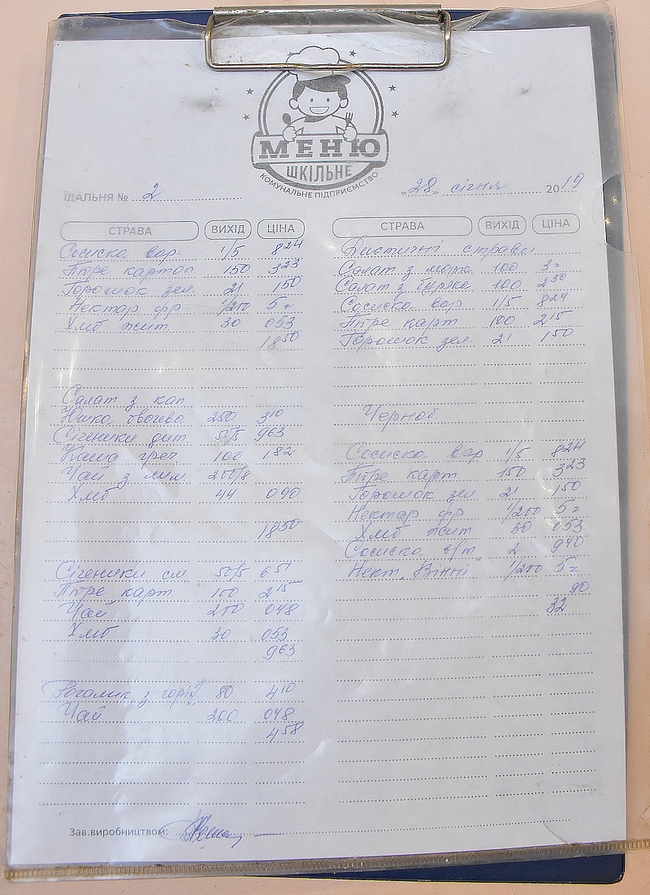 МЕНЮ
ШКІЛЬНЕ
КОМУНАЛЬНЕ ПІДПРИЄМСТВО
ЇДАЛЬНЯ № 2
«28» січня 2019
СТРАВА ВИХІД ЦІНА
Сосиска вар. 1/5 8 24
Пюре картоп 150 3 23
Горошок зел. 21 1 50
Нектар фр. 1/200 5=
Хліб жит 30 0 53
18 50
Салат з кап
Юшка овочева 250 3 10
Січеники дит. 50/5 9 63
Каша греч 100 1 82
Чай з лим. 200/8
Хліб 44 0 90
18 50
Січеники см 50/5 6 51
Пюре карт. 100 2 15
Чай 200 0 48
Хліб 30 0 53
9 63
Рогалик з горіх 80 4 10
Чай 200 0 48
4 58
СТРАВА ВИХІД ЦІНА
Дієтичні страви
Салат з морк 100 3=
Салат з буряка 100 2 50
Сосиска вар 1/5 8 24
Пюре карт 100 2 15
Горошок зел. 21 1 50
Чорноб.
Сосиска вар 1/5 8 24
Пюре карт. 150 3 23
Горошок зел 21 1 50
Нектар фр 1/200 5=
Хліб жит 30 0 53
Сосиска в/т 2 9 40
Нект. Вінні 1/200 5=
32 90
Зав.виробництвом: